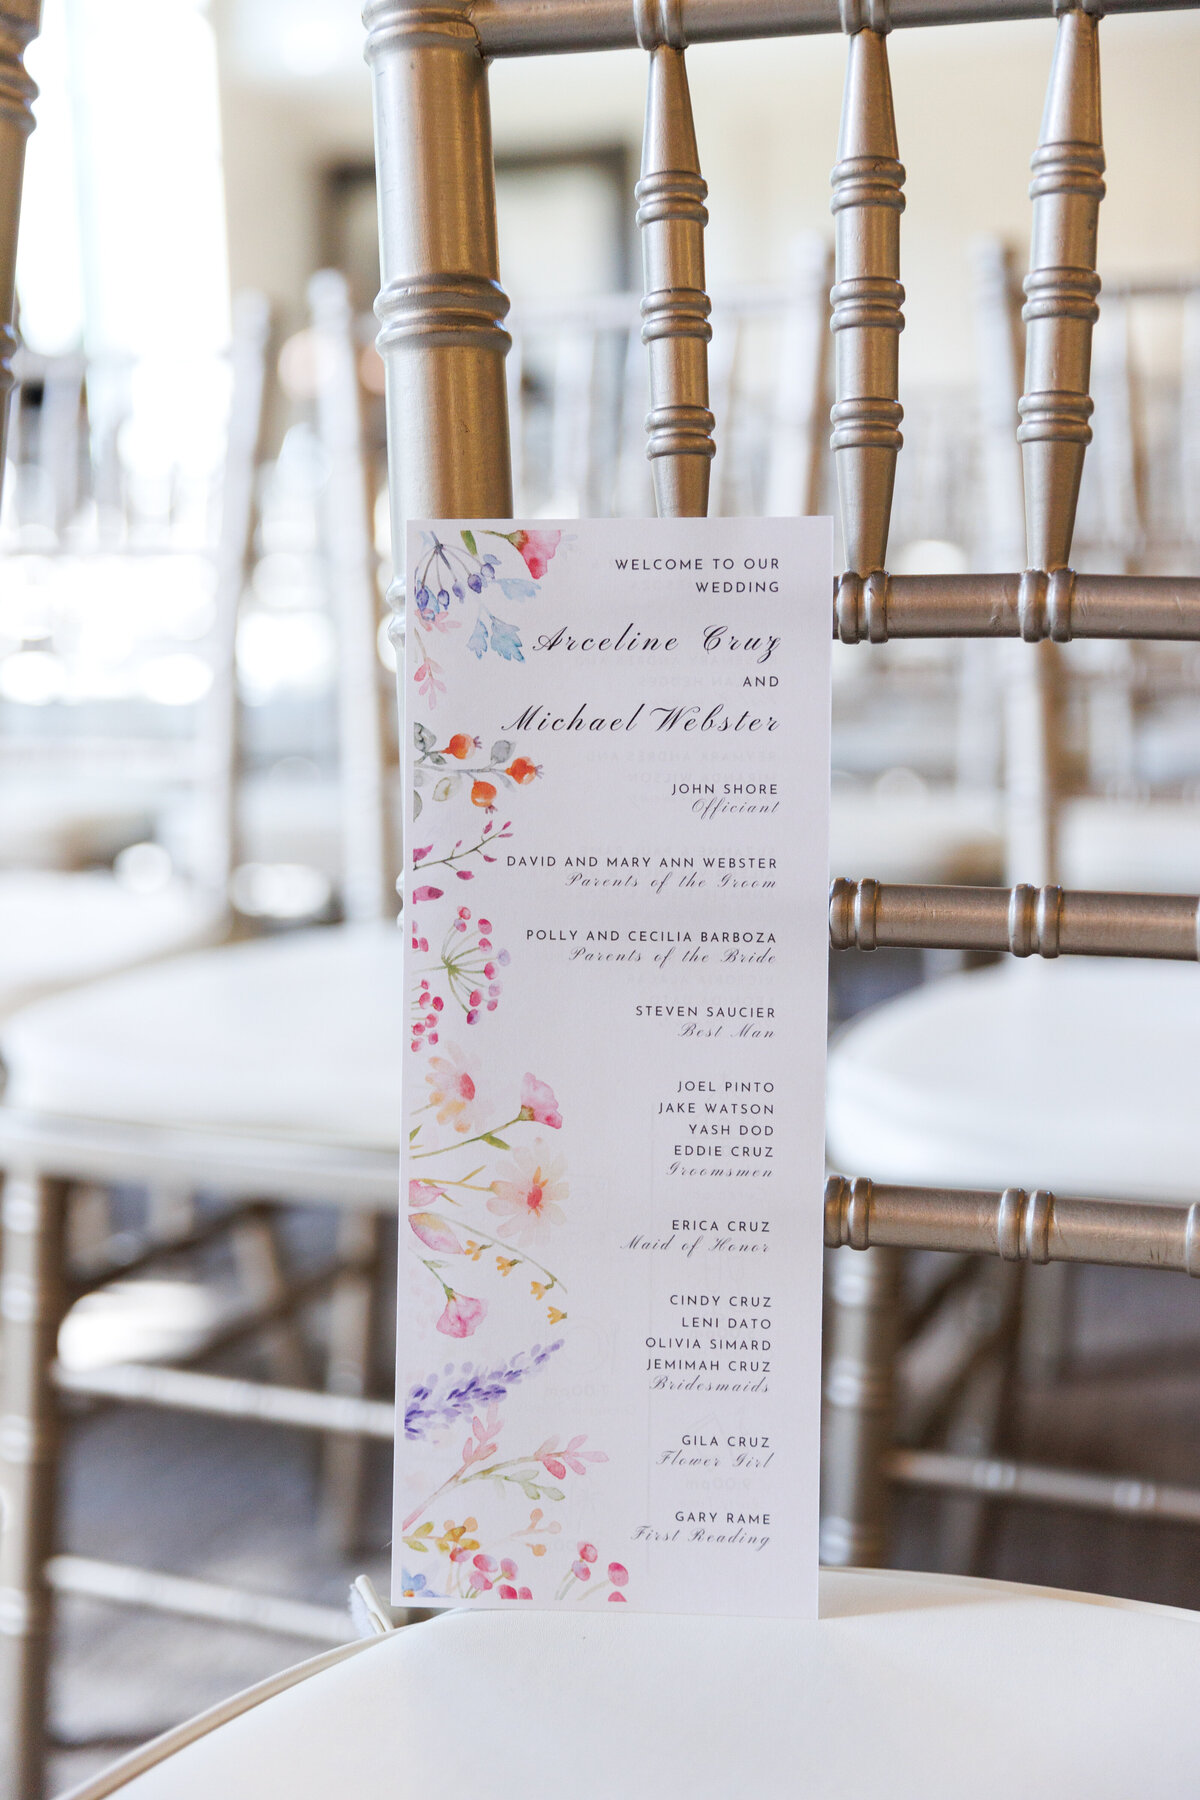 WELCOME TO OUR
WEDDING
Arceline Cruz
AND
Michael Webster
JOHN SHORE
Officiant
DAVID AND MARY ANN WEBSTER
Parents of the Groom
POLLY AND CECILIA BARBOZA
Parents of the Bride
STEVEN SAUCIER
Best Man
JOEL PINTO
JAKE WATSON
YASH DOD
EDDIE CRUZ
Groomsmen
ERICA CRUZ
Maid of Honor
CINDY CRUZ
LENI DATO
OLIVIA SIMARD
JEMIMAH CRUZ
Bridesmaids
GILA CRUZ
Flower Girl
GARY RAME
First Reading